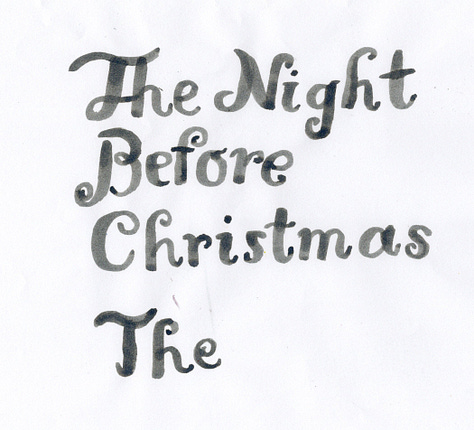 The Night
Before
Christmas
The